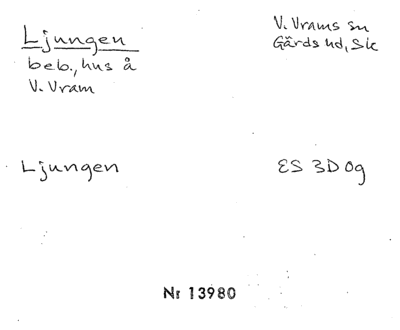 Ljungen
beb., hus å
V. Vram
V. Vrams sn
Gärds hd, Sk
Ljungen
ES 3D 0g
Nr 13980